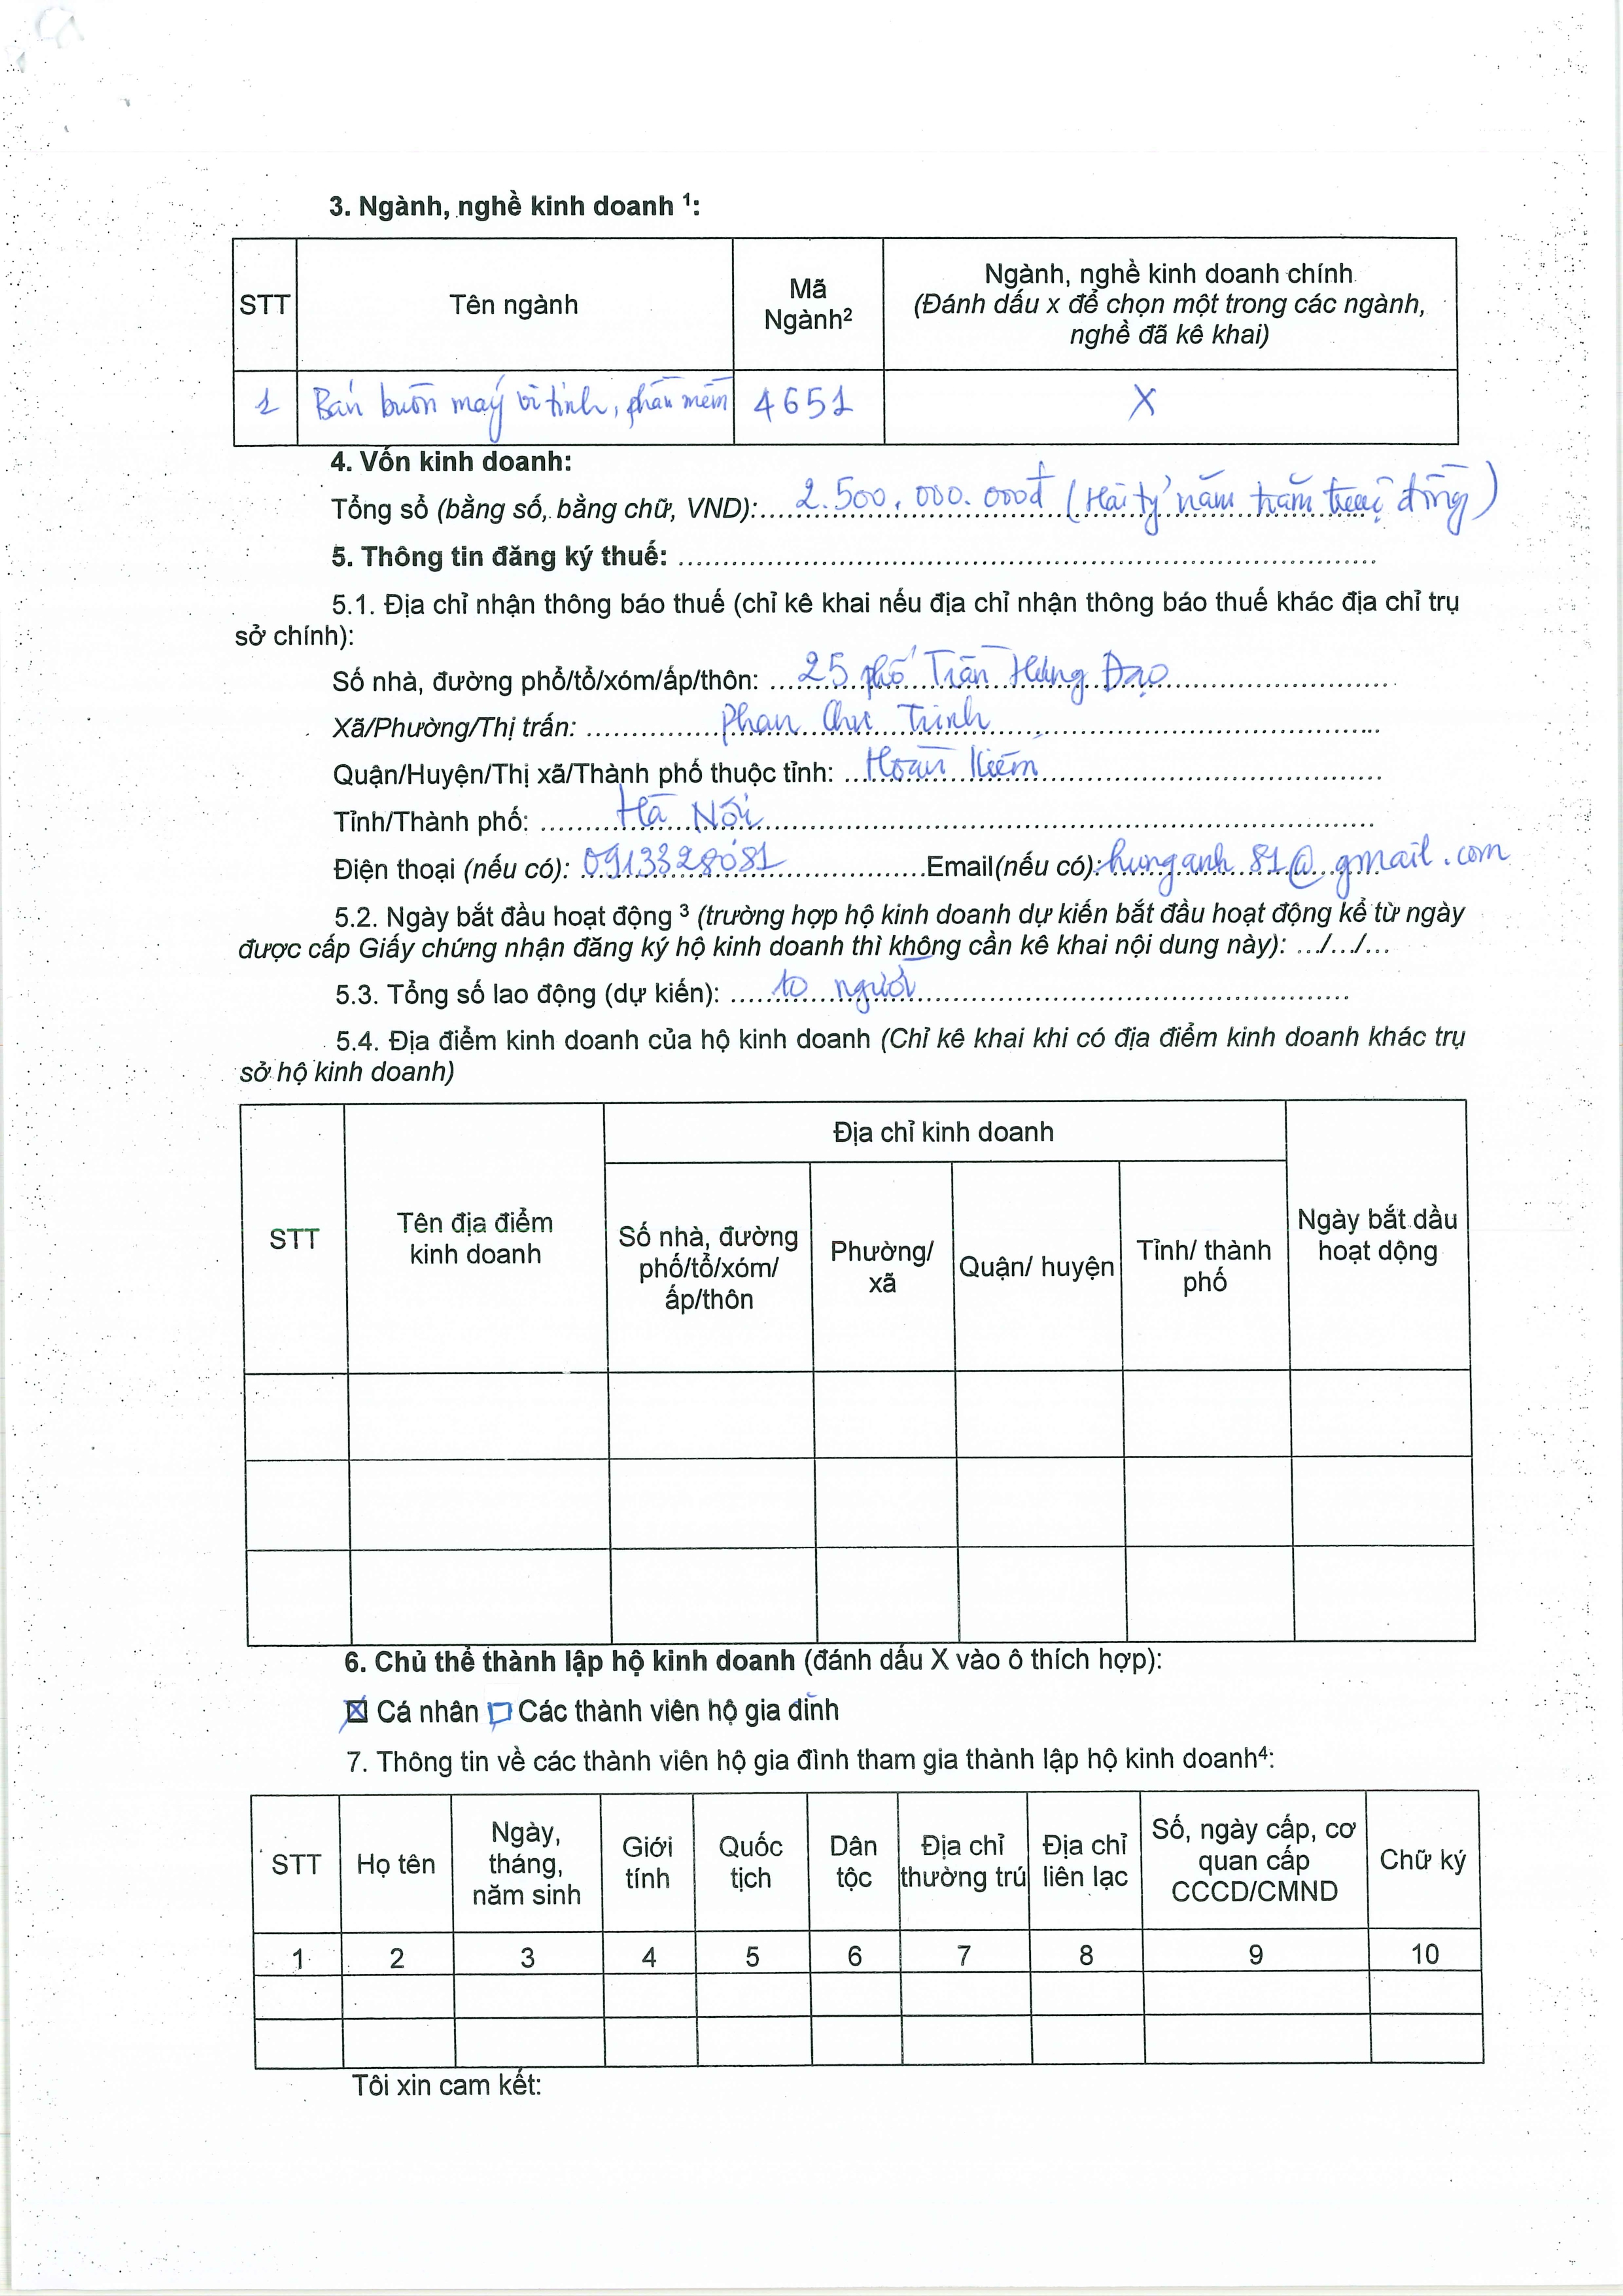 3. Ngành, nghề kinh doanh ¹:
STT
Tên ngành
Mã
Ngành²
Ngành, nghề kinh doanh chính
(Đánh dấu x để chọn một trong các ngành,
nghề đã kê khai)
1 Bán buôn máy vi tính, phần mềm 4651 X
4. Vốn kinh doanh:
Tổng số (bằng số, bằng chữ, VND): 2.500.000.000đ (Hai tỷ năm trăm triệu đồng)
5. Thông tin đăng ký thuế: ........................................
5.1. Địa chỉ nhận thông báo thuế (chỉ kê khai nếu địa chỉ nhận thông báo thuế khác địa chỉ trụ
sở chính):
Số nhà, đường phố/tổ/xóm/ấp/thôn: 25 phố Trần Hưng Đạo
Xã/Phường/Thị trấn: Phan Chu Trinh
Quận/Huyện/Thị xã/Thành phố thuộc tỉnh: Hoàn Kiếm
Tỉnh/Thành phố: Hà Nội
Điện thoại (nếu có): 0913328081 Email(nếu có): hunganh81@gmail.com
5.2. Ngày bắt đầu hoạt động ³ (trường hợp hộ kinh doanh dự kiến bắt đầu hoạt động kể từ ngày
được cấp Giấy chứng nhận đăng ký hộ kinh doanh thì không cần kê khai nội dung này): .../.../...
5.3. Tổng số lao động (dự kiến): 10 người
5.4. Địa điểm kinh doanh của hộ kinh doanh (Chỉ kê khai khi có địa điểm kinh doanh khác trụ
sở hộ kinh doanh)
STT
Tên địa điểm
kinh doanh
Địa chỉ kinh doanh
Số nhà, đường
phố/tổ/xóm/
ấp/thôn
Phường/
xã
Quận/ huyện
Tỉnh/ thành
phố
Ngày bắt dầu
hoạt động
6. Chủ thể thành lập hộ kinh doanh (đánh dấu X vào ô thích hợp):
☒ Cá nhân ☐ Các thành viên hộ gia dình
7. Thông tin về các thành viên hộ gia đình tham gia thành lập hộ kinh doanh⁴:
STT
Họ tên
Ngày,
tháng,
năm sinh
Giới
tính
Quốc
tịch
Dân
tộc
Địa chỉ
thường trú
Địa chỉ
liên lạc
Số, ngày cấp, cơ
quan cấp
CCCD/CMND
Chữ ký
1 2 3 4 5 6 7 8 9 10
Tôi xin cam kết: